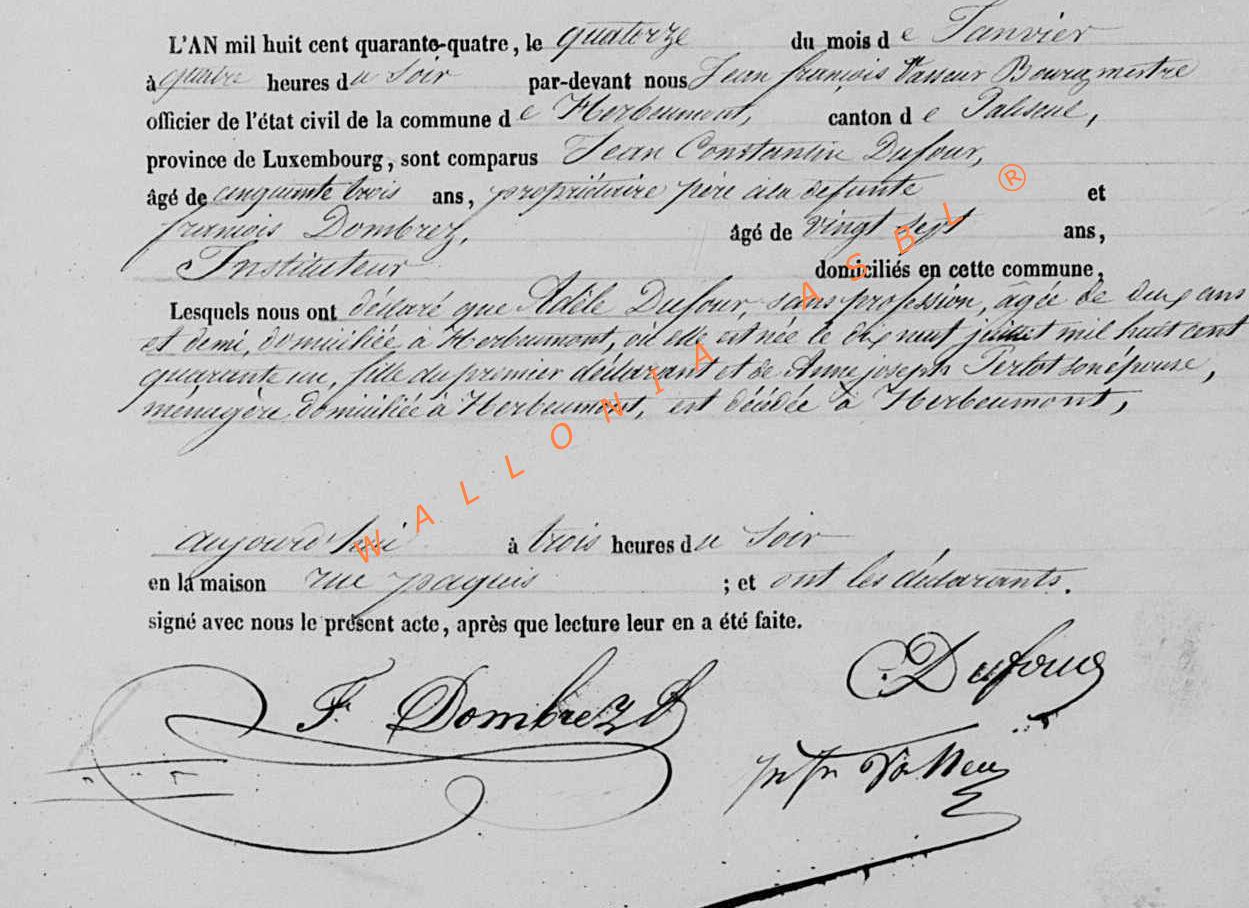 L'AN mil huit cent quarante-quatre, le quatorze du mois de Janvier
à quatre heures du Soir par-devant nous Jean françois Vasseur Bourgmestre
officier de l'état civil de la commune de Herbeumont, canton de Paliseul,
province de Luxembourg, sont comparus Jean Constantin Dufour,
âgé de cinquante trois ans, propriétaire père à la défunte et
françois Dombrez, âgé de vingt sept ans,
Instituteur domiciliés en cette commune,
Lesquels nous ont déclaré que Adèle Dufour, sans profession, âgée de deux ans
et demi, domiciliée à Herbeumont, où elle est née le dix neuf juillet mil huit cent
quarante un, fille du premier déclarant et de Anne joseph Pertot son épouse,
ménagère domiciliée à Herbeumont, est décédée à Herbeumont,
aujourd'hui à trois heures du Soir
en la maison rue paquis ; et ont les déclarants.
signé avec nous le présent acte, après que lecture leur en a été faite.
C. Dufour
F. Dombrez
WALLONIA ASBL ®